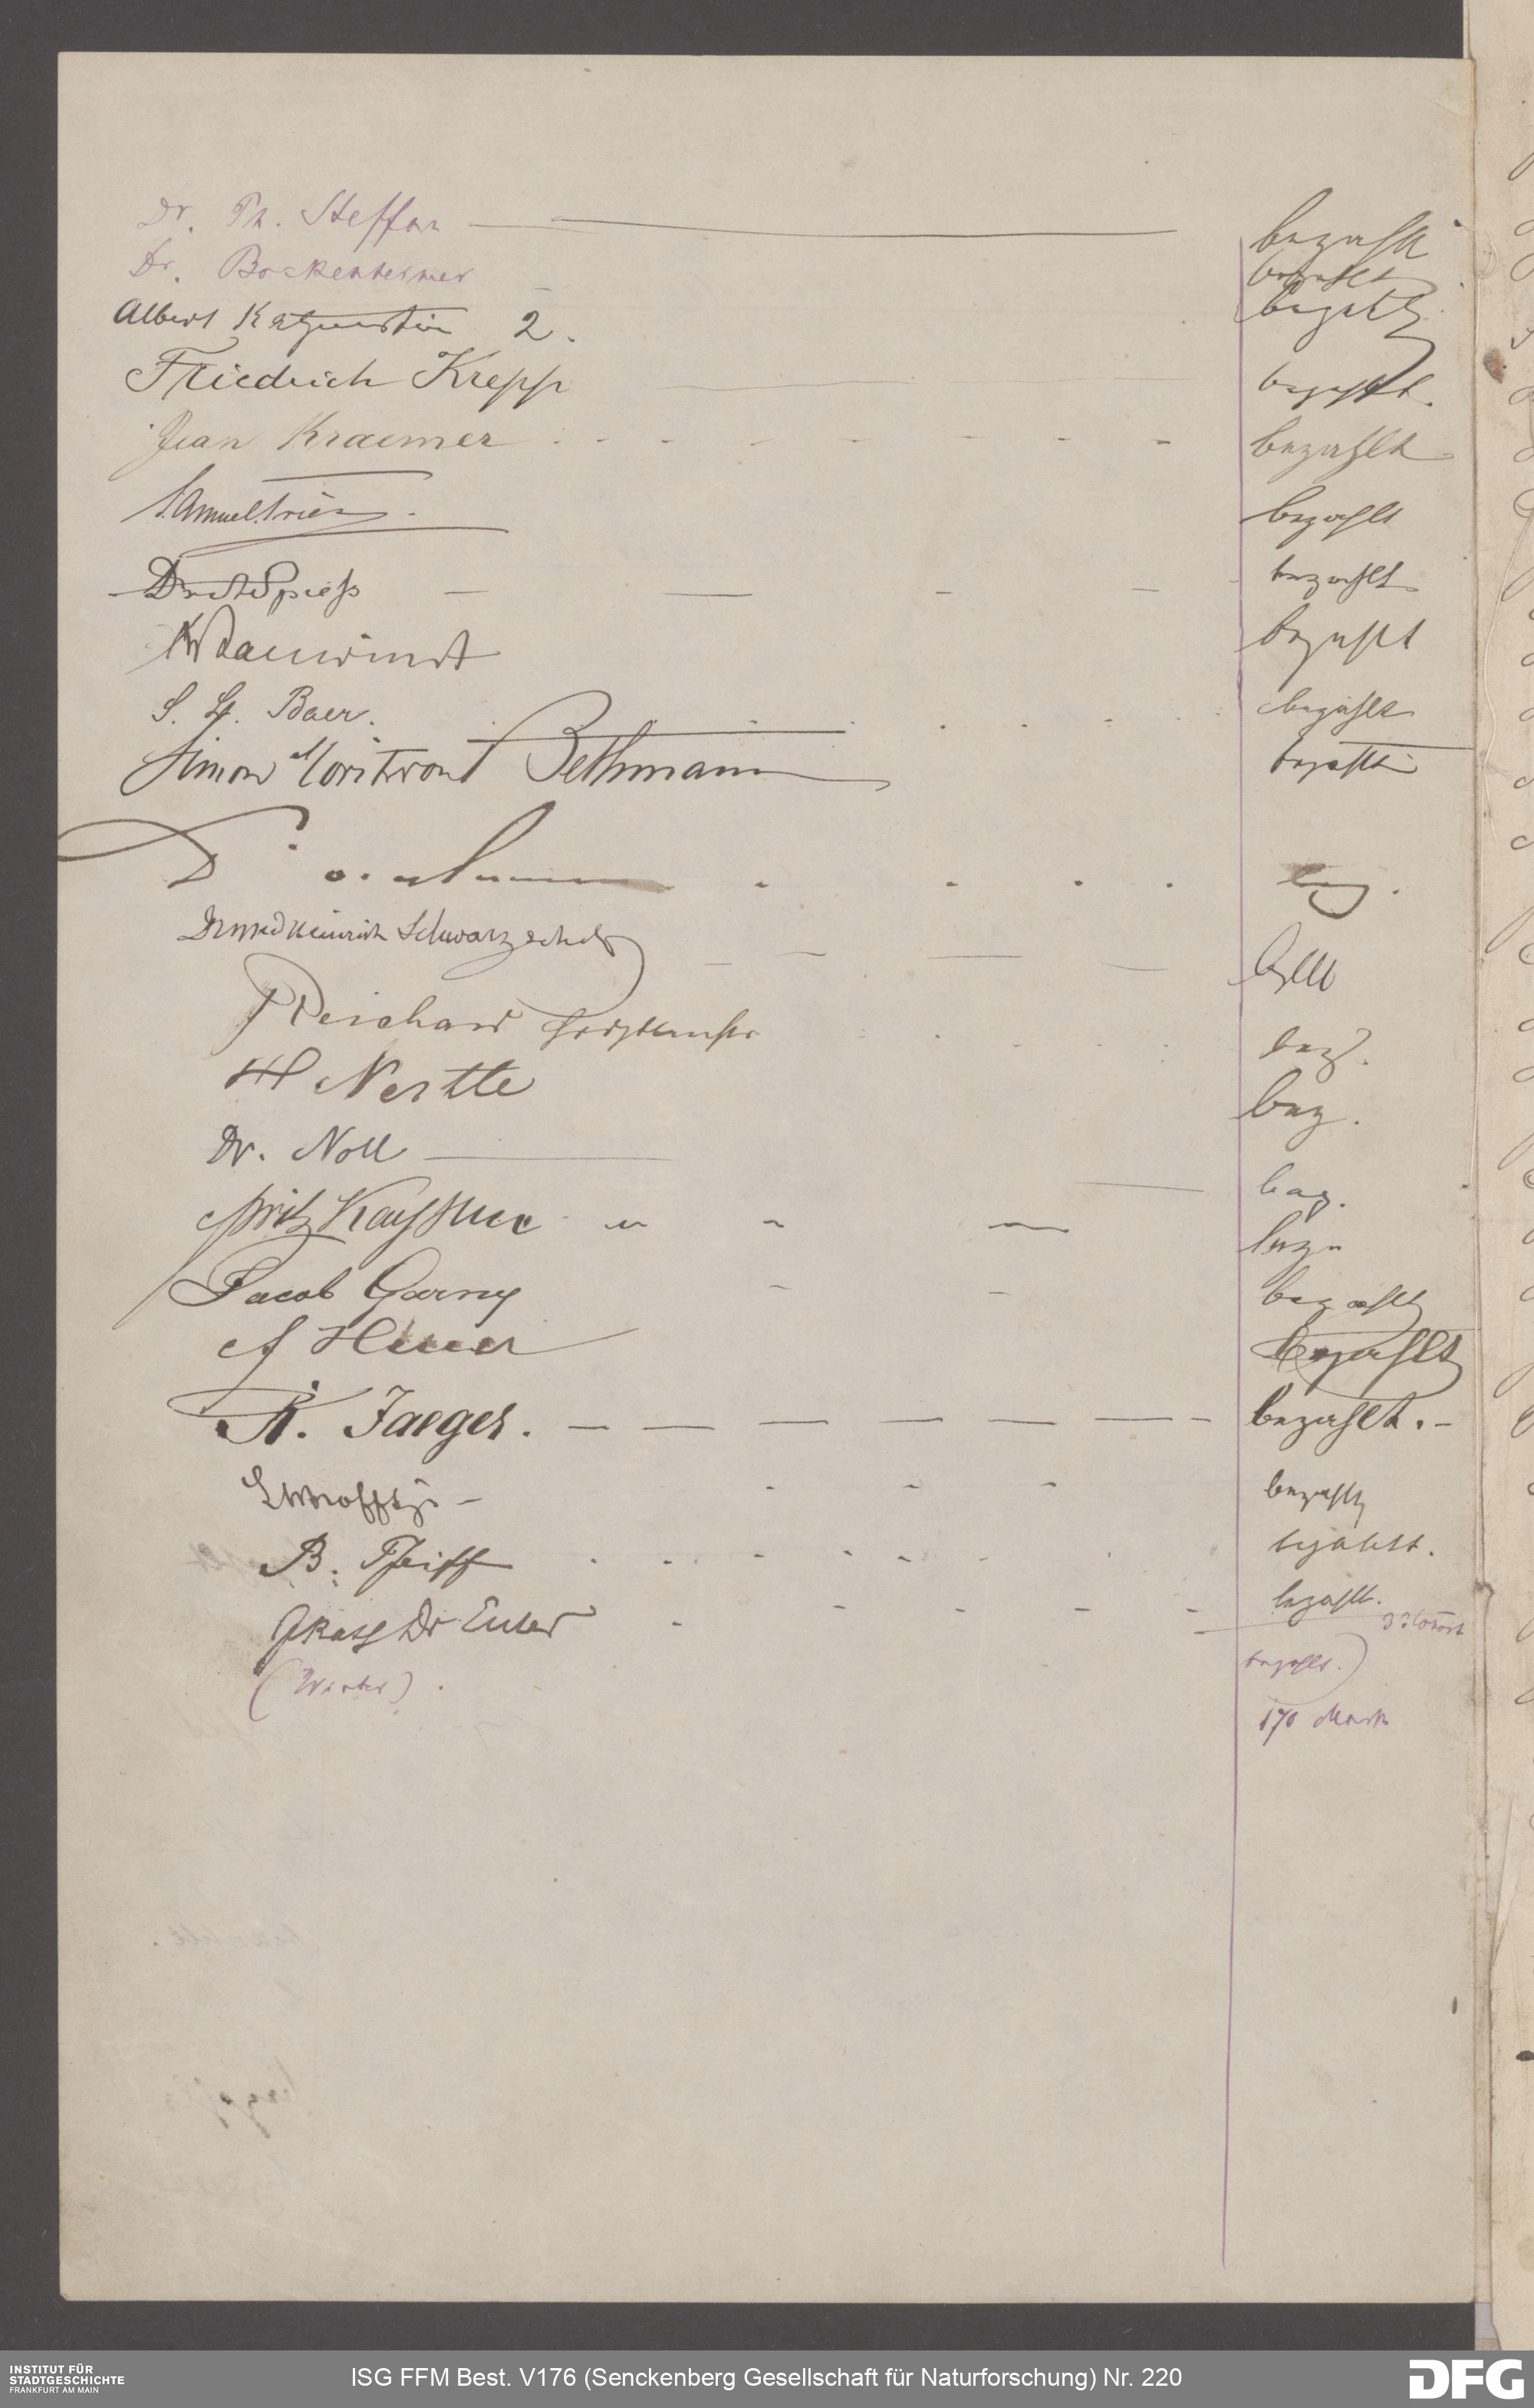 Dr. Ph. Steffan bezahlt
Dr. Bockenheimer bezahlt
Albert Katzenstein 2. bezahlt
Friedrich Krepp bezahlt.
Jean Kraemer bezahlt
Samuel Trier bezahlt
Dr Spieß bezahlt
bezahlt
S. L. Baer. bezahlt
Simon Moritz von Bethmann bezahlt
Dr bez.
Dr med Heinrich Schwarzschild bzlt
Reichard bez.
H Nestle bez.
Dr. Noll bez.
Fritz bez.
Jacob Garny bezahlt
A Heuer bezahlt
R. Jaeger. bezahlt.
bezahlt
B. Pfeiff bezahlt.
Dr Euler bezahlt.
(Winter). bezahlt.)
170 Mark
INSTITUT FÜR
STADTGESCHICHTE
FRANKFURT AM MAIN
ISG FFM Best. V176 (Senckenberg Gesellschaft für Naturforschung) Nr. 220
DFG